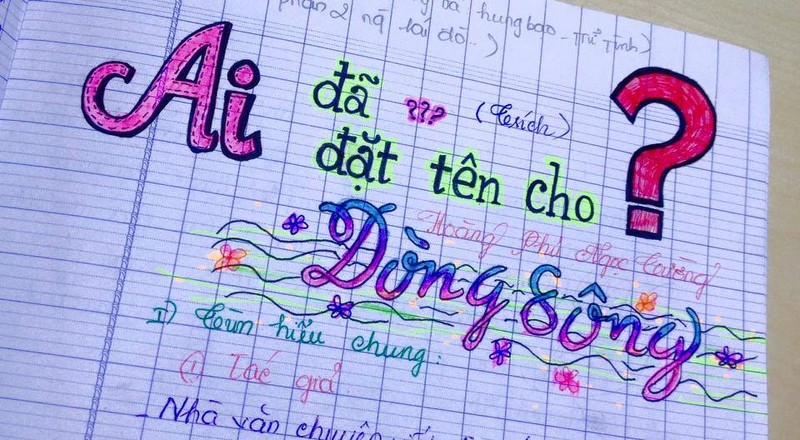 hung bạo - Trữ Tình)
phần 2 ng lái đò..)
Ai đã ??? (Trích)
đặt tên cho ?
Hoàng Phủ Ngọc Tường
Dòng Sông
I) Tìm hiểu chung:
① Tác giả
- Nhà văn chuyên